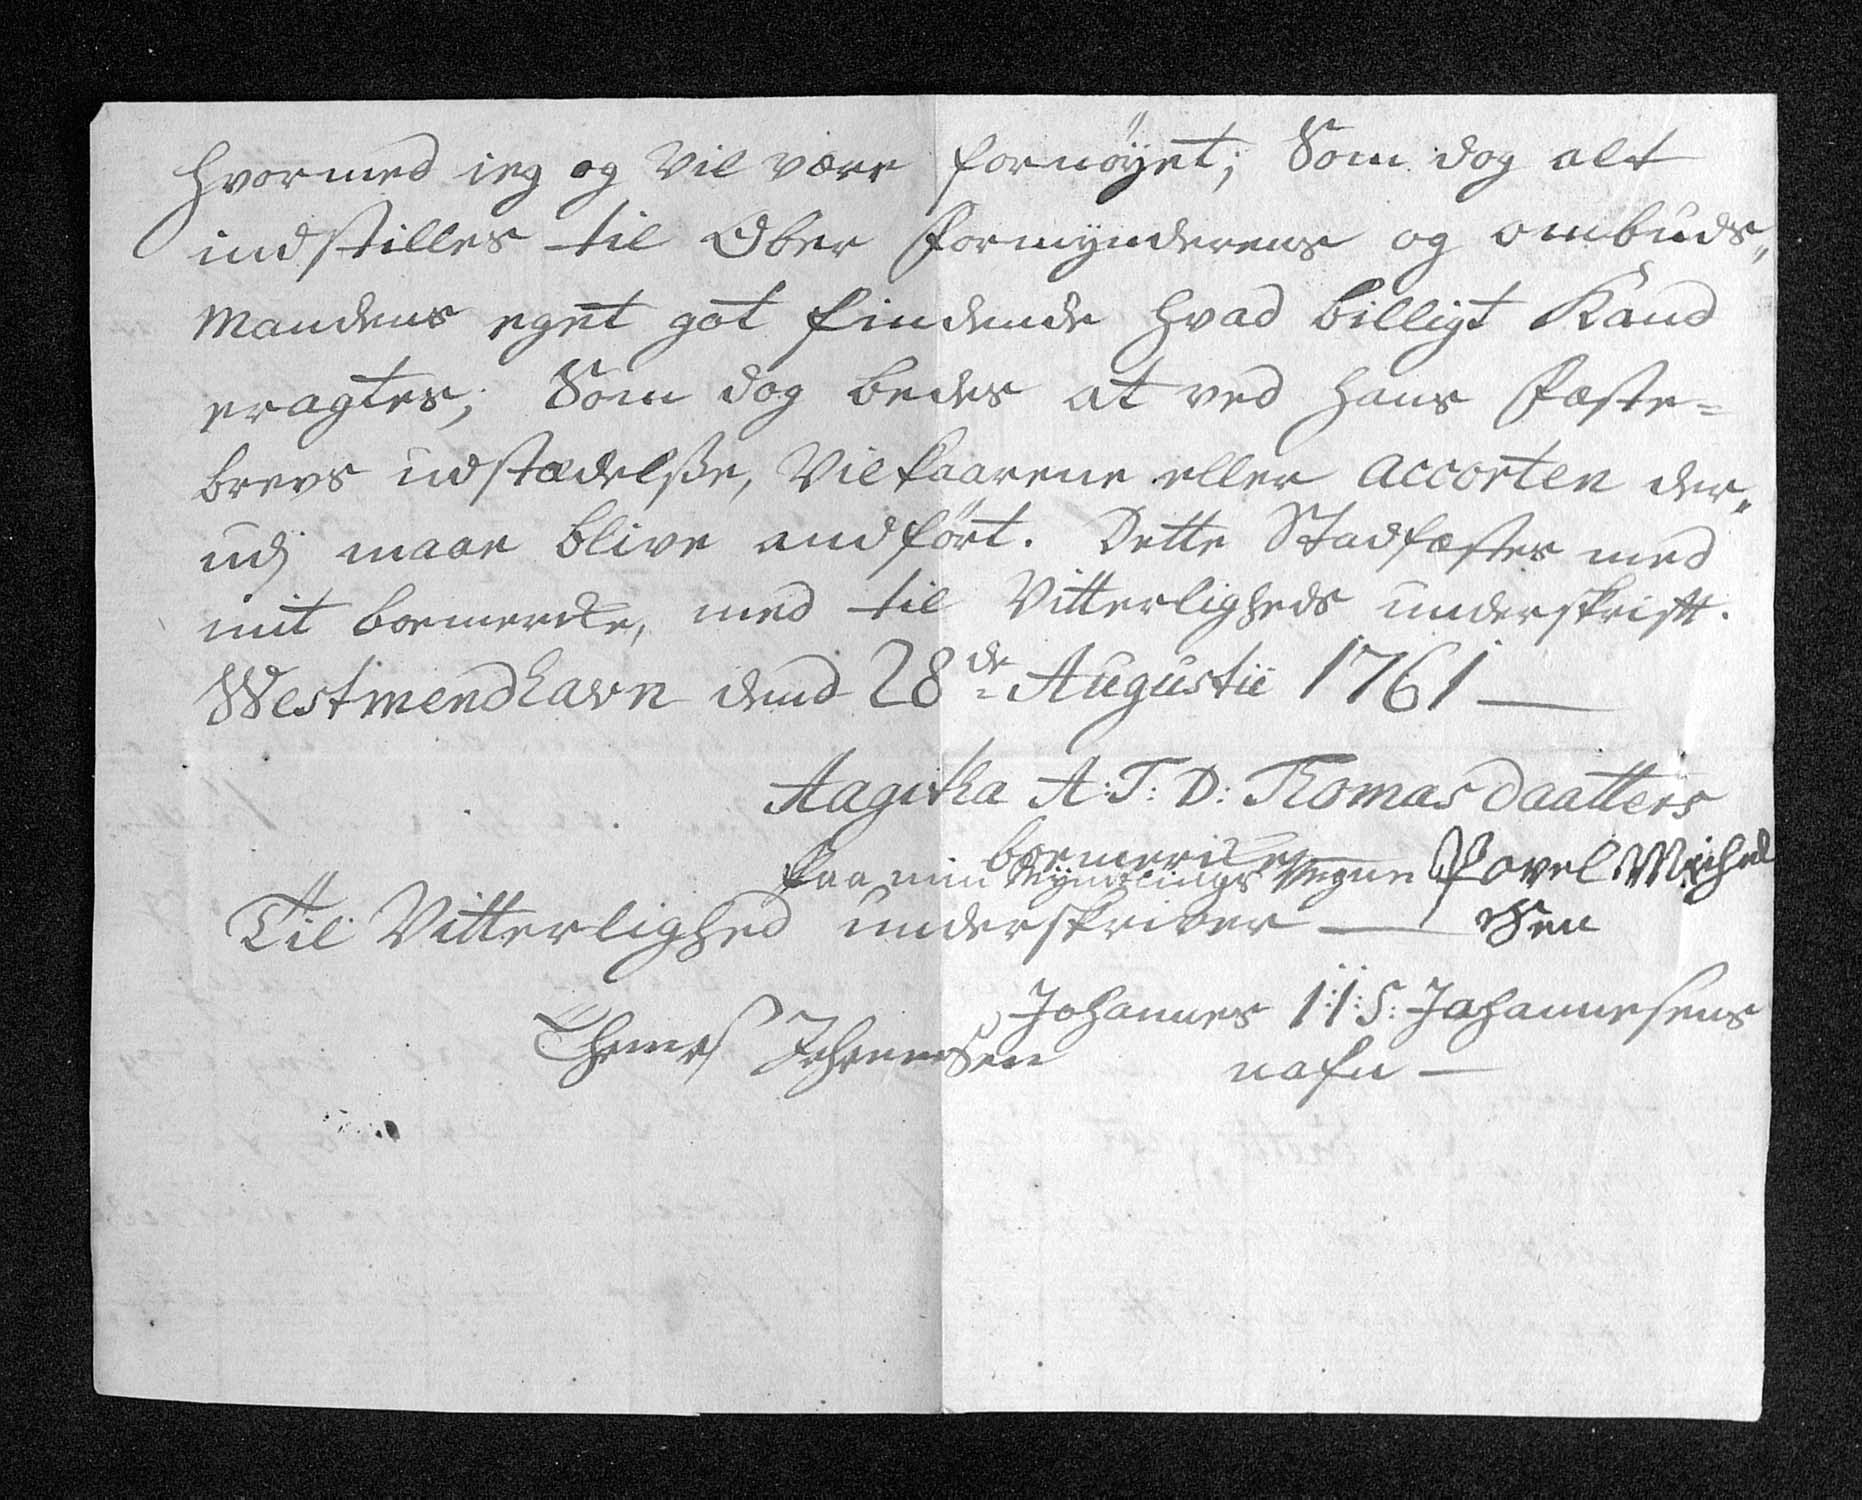 hvormed ieg og Vil være fornöyet; Som dog alt
indstilles til Ober Formynderens og ombuds„
Mandens eget got findende hvad billigt Kand
eragtes; Som dog bedes at ved hans Fæste=
brevs udstædelße, Vilkaarene eller accorten der„
udj maae blive andfört. Dette Stadfæstes med
mit boemercke, med til Vitterligheds underskrift.
Westmendhavn dend 28de Augustii 1761 —
Aagitha A: T: D: Thomasdaatters
boemercke
Paa min Myndlings Vegne Povel Michel
Sen
Til Vitterlighed underskriver —
Johannes I: I: S: Johannesens
nafn —
Thomas Johannesen